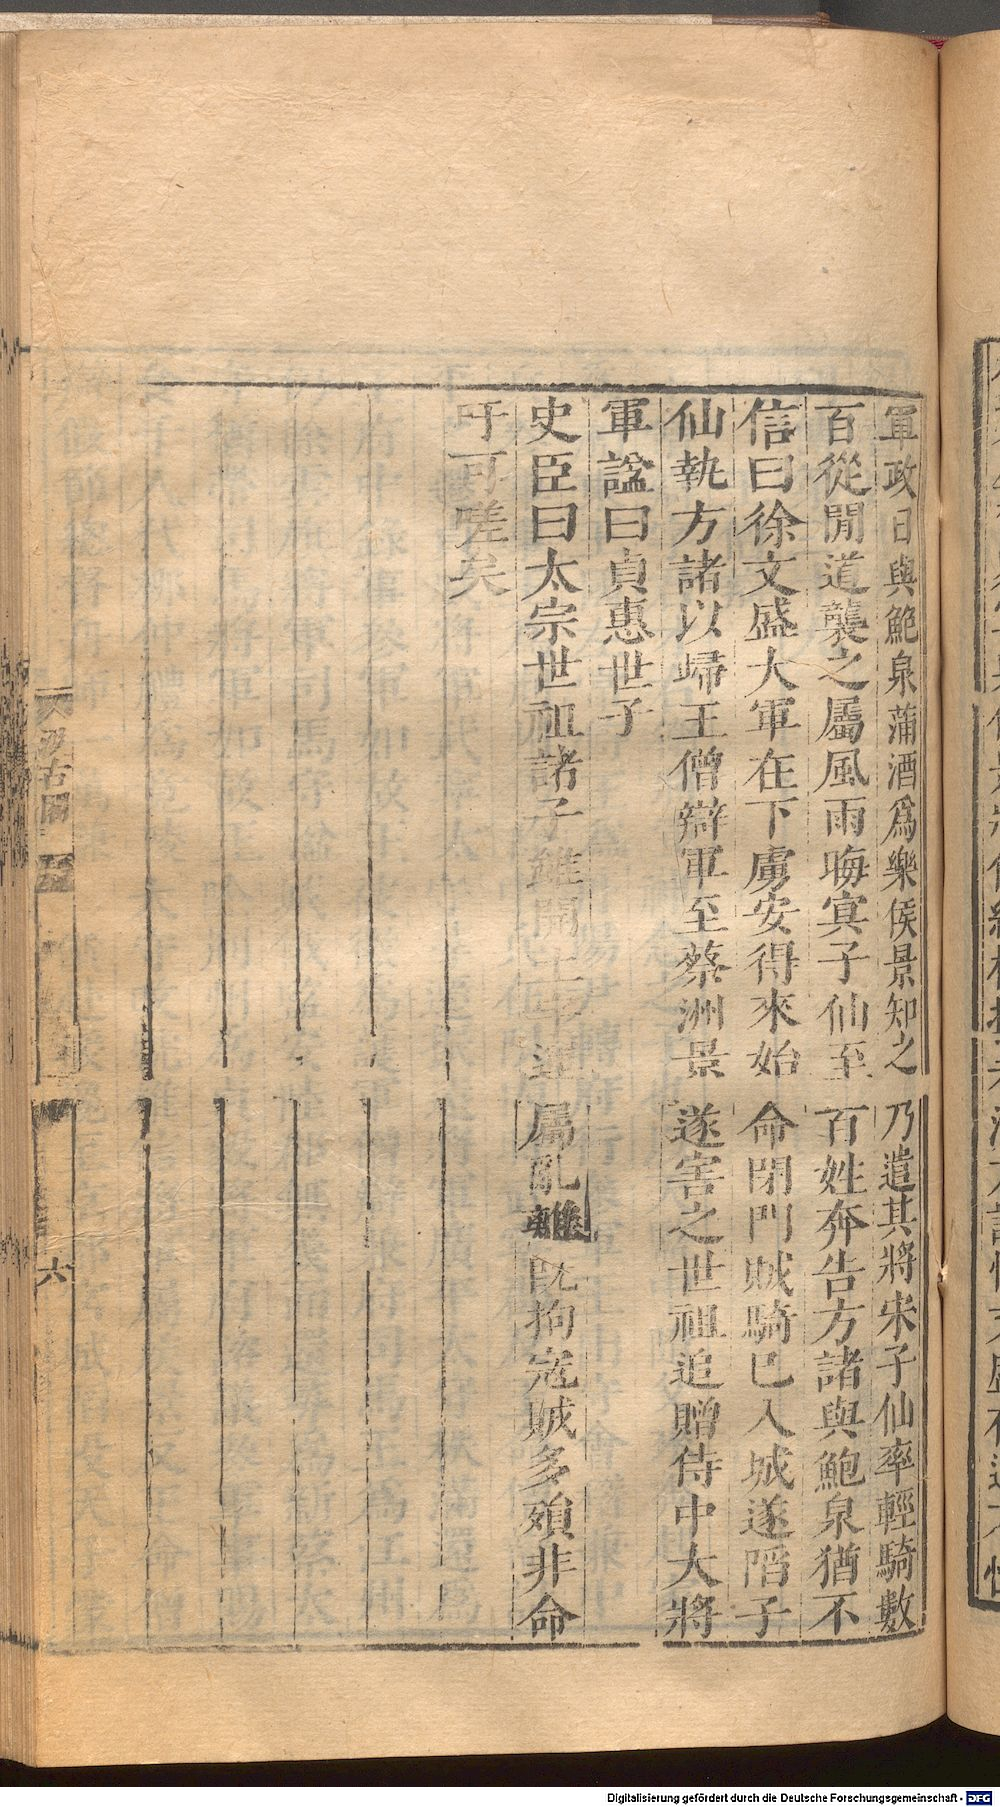 軍政日與鮑泉蒲酒爲樂侯景知之乃遣其將宋子仙率輕騎數
百從閒道襲之屬風雨晦寞子仙至百姓奔告方諸與鮑泉猶不
信曰徐文盛大軍在下虜安得來始命閉門賊騎已入城遂䧟子
仙執方諸以歸王僧辯軍至蔡洲景遂害之世祖追贈侍中大將
軍諡曰貞惠世子
史臣曰太宗世祖諸子雖開土宇運屬亂離既拘寇賊多殞非命
吁可嗟矣
汲古閣
六
Digitalisierung gefördert durch die Deutsche Forschungsgemeinschaft - DFG